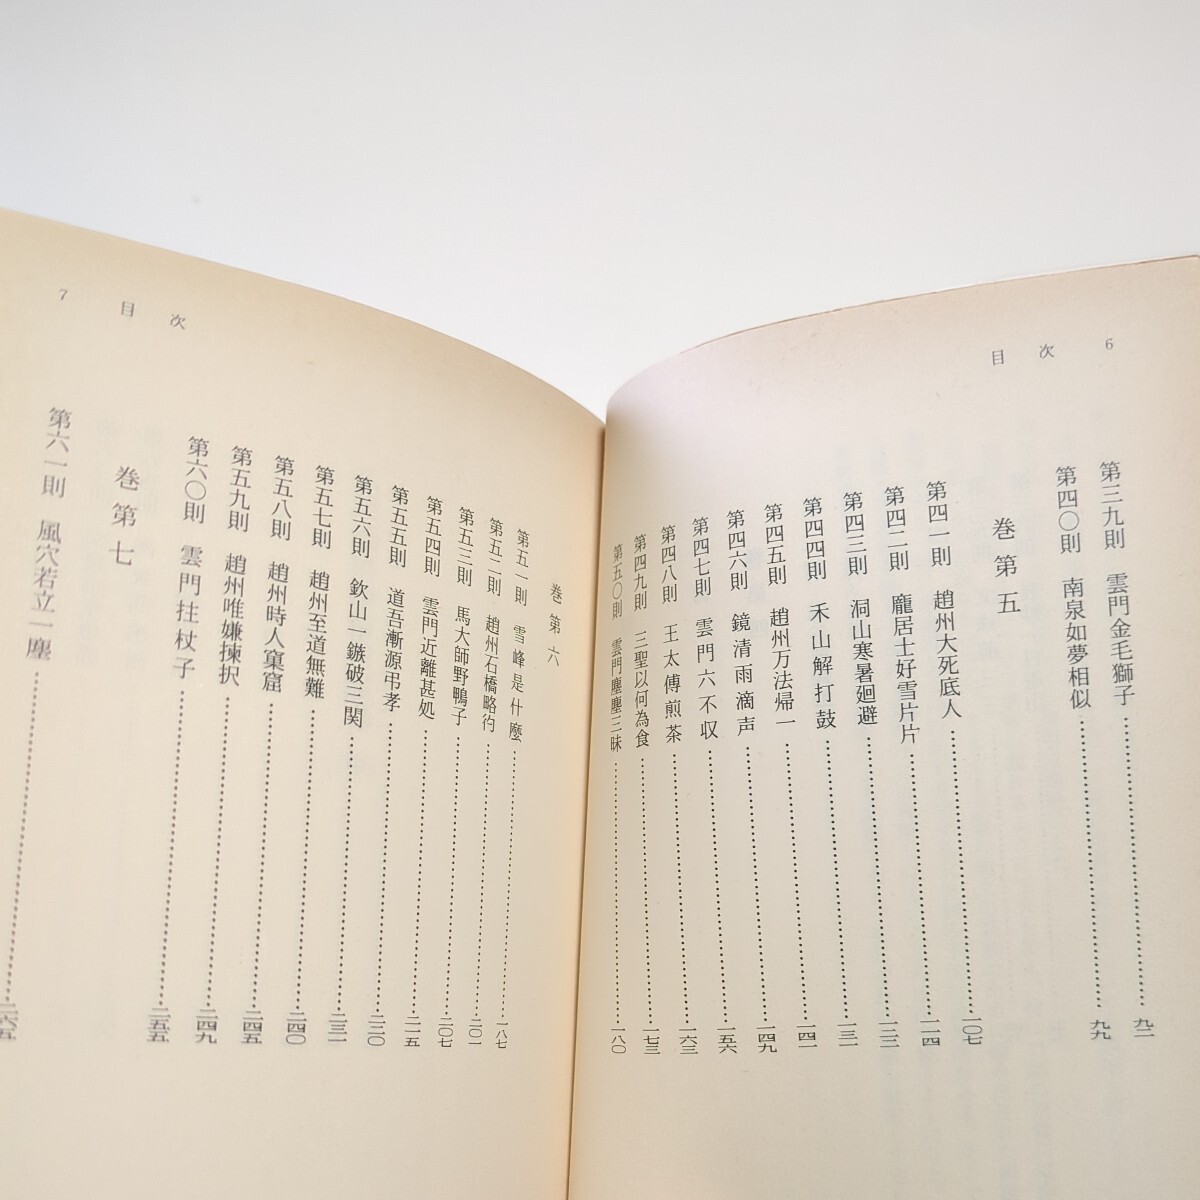 目次 6
第三九則 雲門金毛獅子……九二
第四〇則 南泉如夢相似……九九
巻第五
第四一則 趙州大死底人……一〇七
第四二則 龐居士好雪片片……一一四
第四三則 洞山寒暑廻避……一二三
第四四則 禾山解打鼓……一三一
第四五則 趙州万法帰一……一四一
第四六則 鏡清雨滴声……一四九
第四七則 雲門六不収……一五六
第四八則 王太傅煎茶……一六三
第四九則 三聖以何為食……一七三
第五〇則 雲門塵塵三昧……一八〇
7 目次
巻第六
第五一則 雪峰是什麼……一八七
第五二則 趙州石橋略彴……二〇一
第五三則 馬大師野鴨子……二〇七
第五四則 雲門近離甚処……二一五
第五五則 道吾漸源弔孝……二二〇
第五六則 欽山一鏃破三関……二三二
第五七則 趙州至道無難……二四〇
第五八則 趙州時人窠窟……二四五
第五九則 趙州唯嫌揀択……二四九
第六〇則 雲門拄杖子……二五五
巻第七
第六一則 風穴若立一塵……二六五